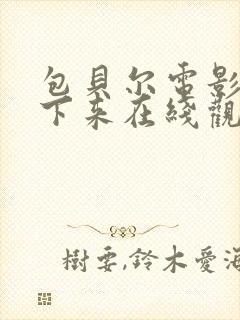 包貝尔電影
下来在綫觀
樹要,鈴木愛海